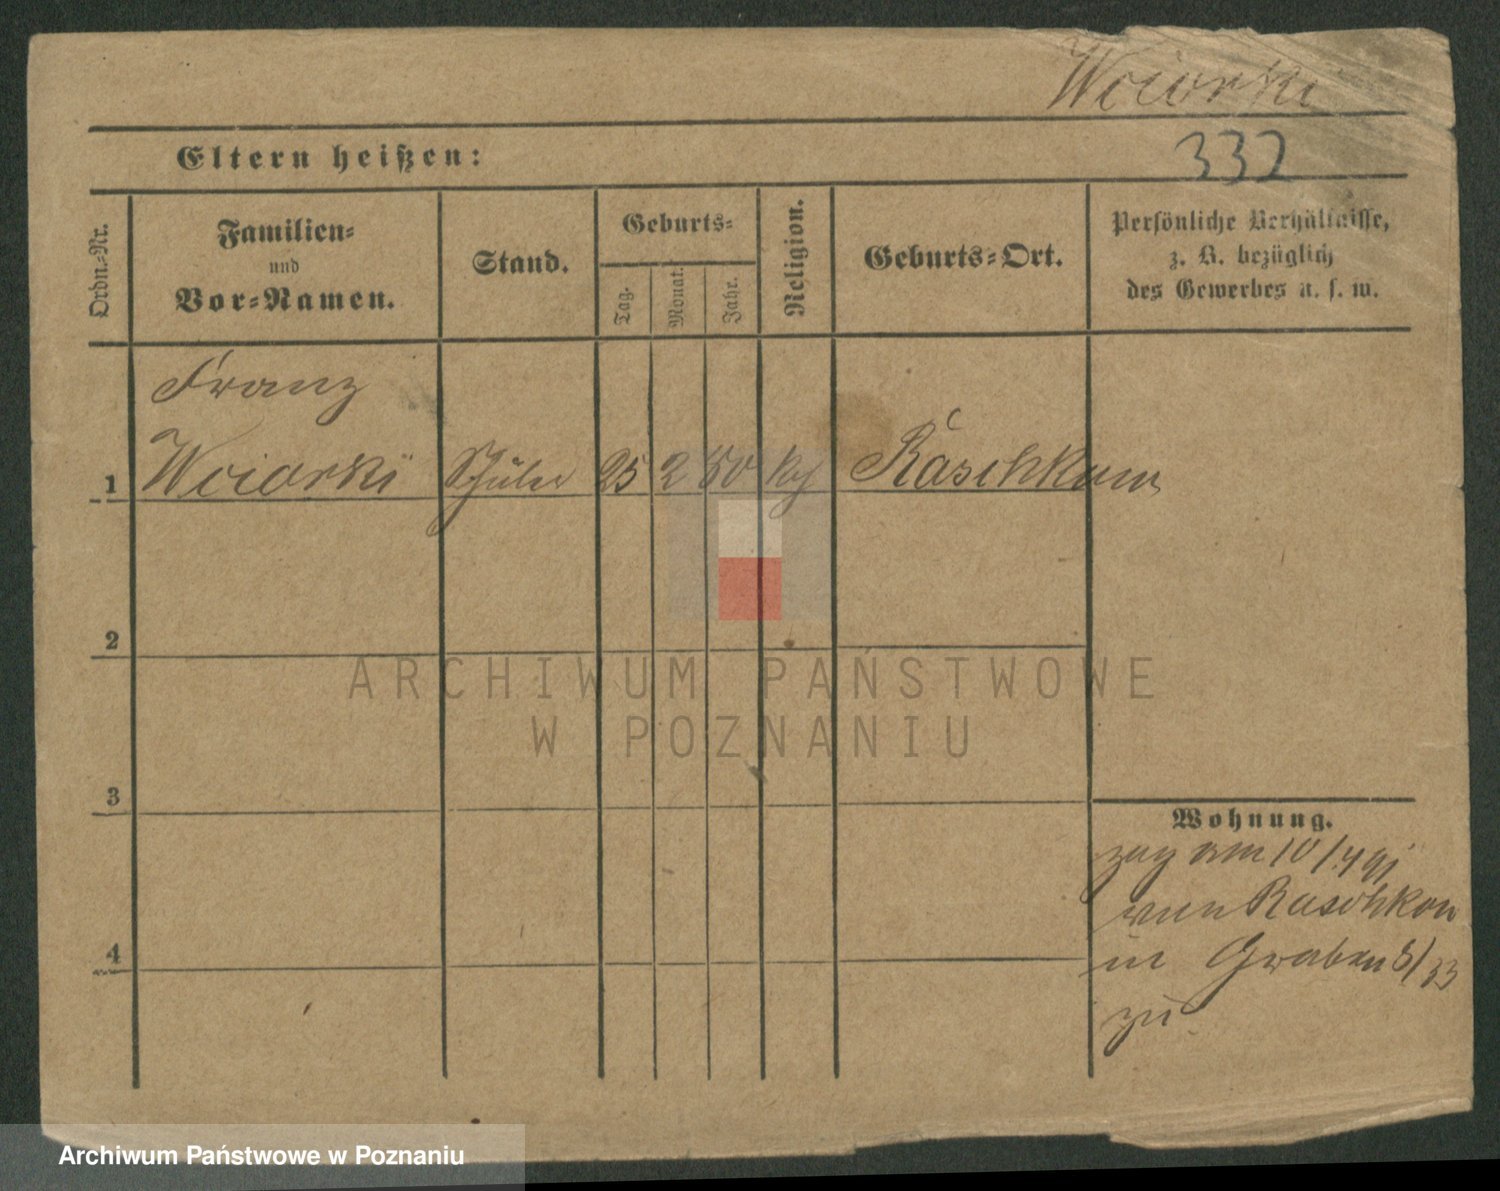 Wciorki
332
Eltern heißen:
Ordn.-Nr.
Familien-
und
Vor-Namen.
Stand.
Geburts-
Tag.
Monat.
Jahr.
Religion.
Geburts-Ort.
Persönliche Verhältnisse,
z. B. bezüglich
des Gewerbes u. s. w.
Franz
1 Wciorki Schüler 25 2 80 kth Raschkow
2
3
4
Wohnung.
zog am 10/4 91
von Raschkow
in Graben 8/33
zu
ARCHIWUM PAŃSTWOWE
W POZNANIU
Archiwum Państwowe w Poznaniu